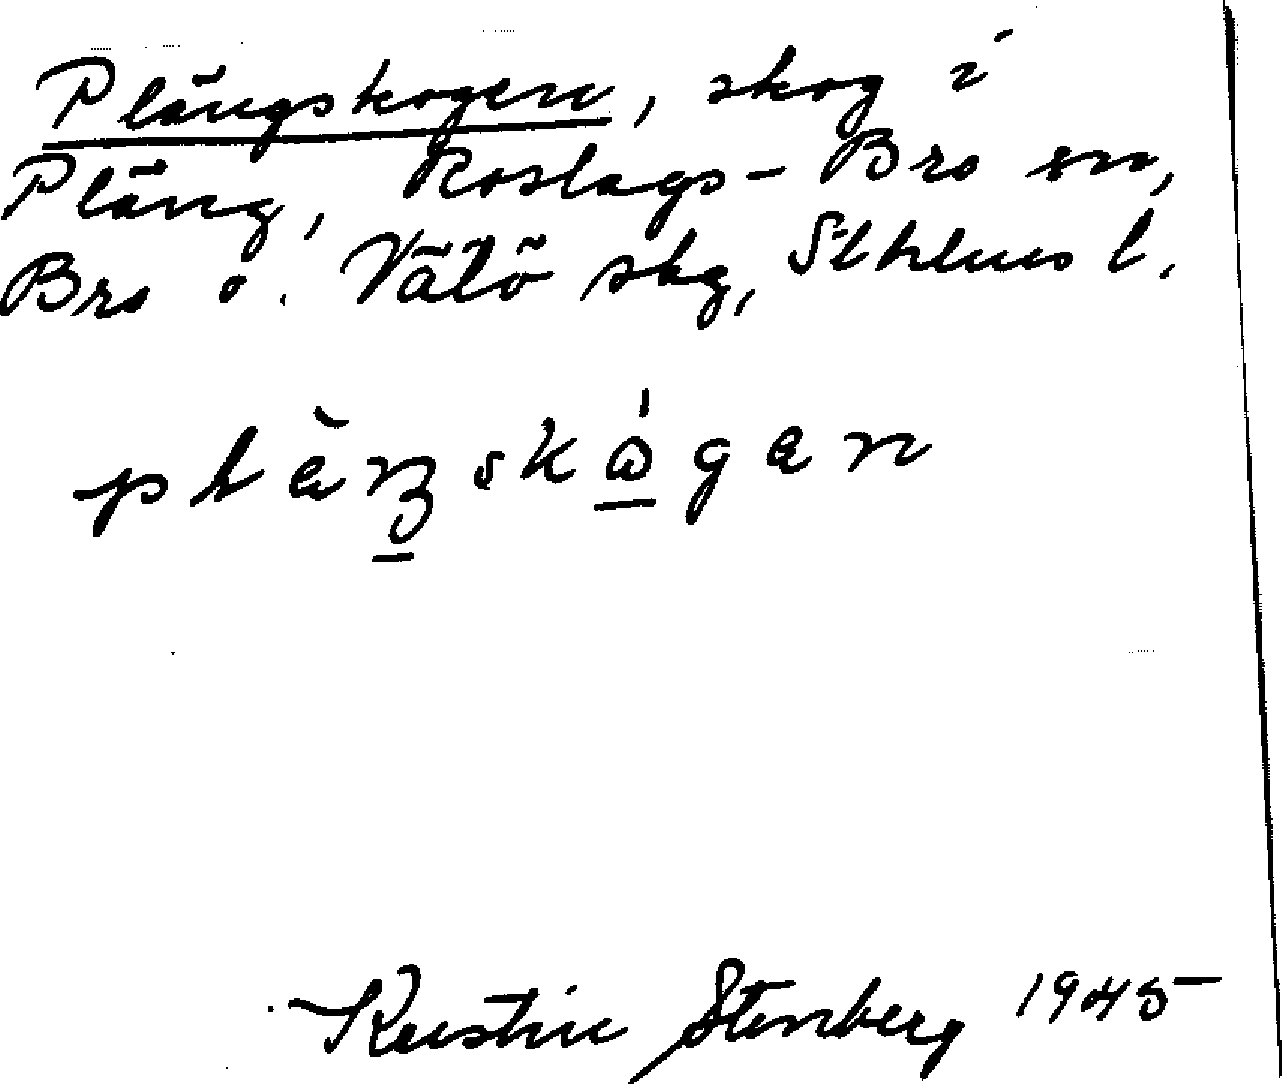 Plängskogen, skog i
Pläng, Roslags-Bro sn,
Bro o. Vätö skg, Sthlms l.
plàŋskógen
Kerstin Stenberg 1945